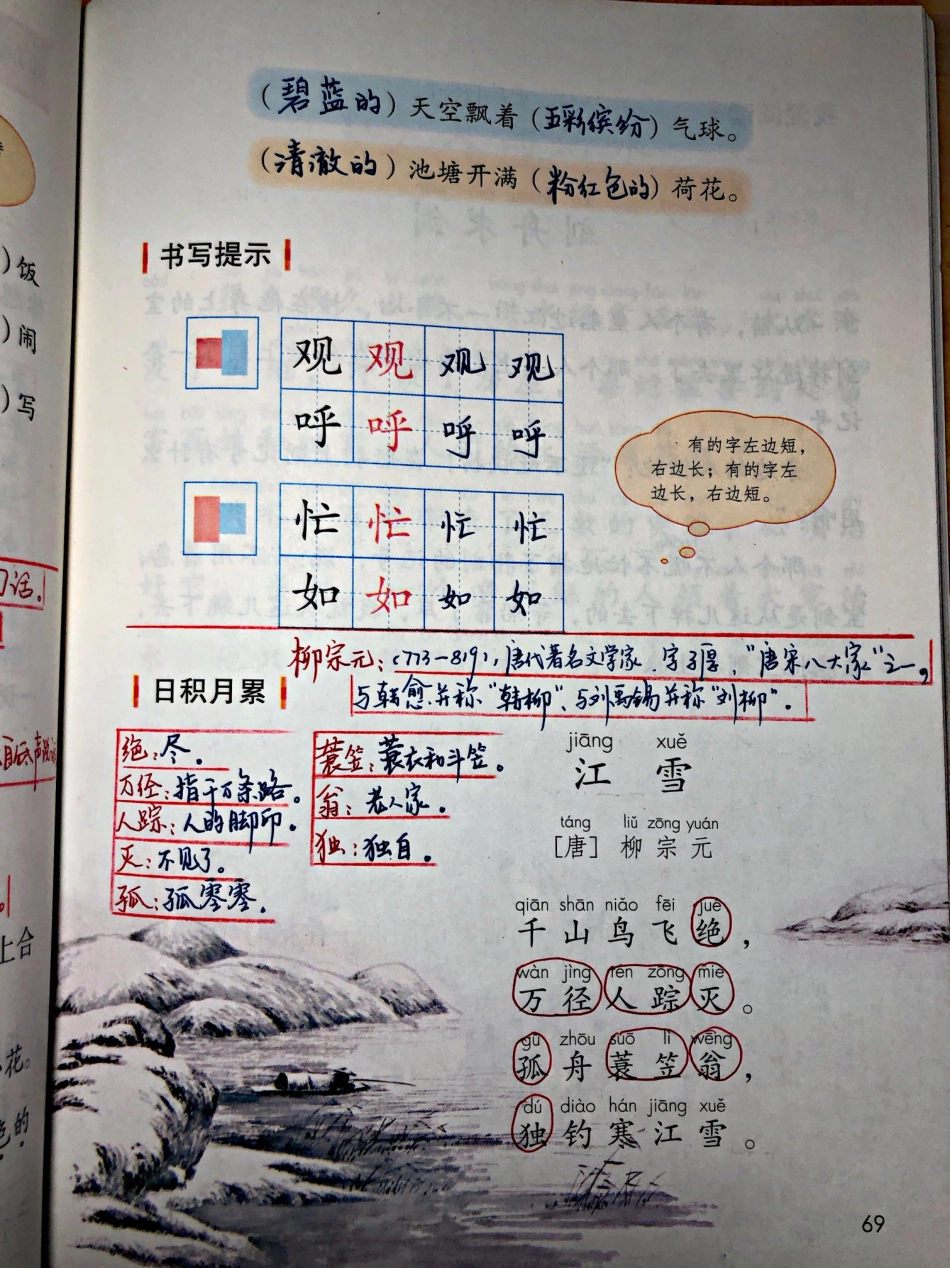 (碧蓝的)天空飘着(五彩缤纷)气球。
(清澈的)池塘开满(粉红色的)荷花。
书写提示
观 观 观 观
呼 呼 呼 呼
忙 忙 忙 忙
如 如 如 如
有的字左边短，
右边长；有的字左
边长，右边短。
柳宗元：(773—819)，唐代著名文学家，字子厚，“唐宋八大家”之一，
与韩愈并称“韩柳”、与刘禹锡并称“刘柳”。
日积月累
绝：尽。
万径：指千万条路。
人踪：人的脚印。
灭：不见了。
孤：孤零零。
蓑笠：蓑衣和斗笠。
翁：老人家。
独：独自。
jiāng xuě
江 雪
táng liǔ zōng yuán
[唐] 柳宗元
qiān shān niǎo fēi jué
千山鸟飞绝，
wàn jìng rén zōng miè
万径人踪灭。
gū zhōu suō lì wēng
孤舟蓑笠翁，
dú diào hán jiāng xuě
独钓寒江雪。
69
)饭
)闹
)写
话。
上合
花。
色的